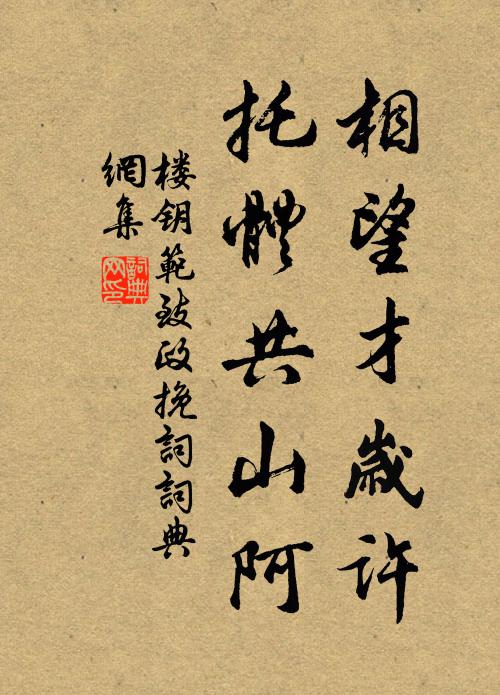 相望才歲許
托體共山阿
楼钥範致政挽詞詞典
網集
詞典
网印